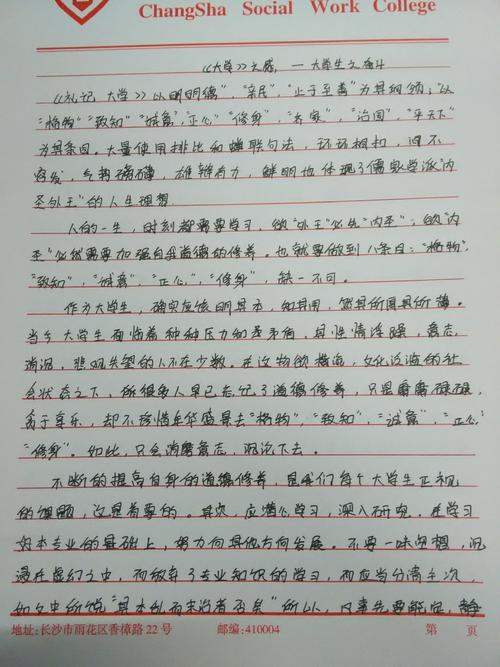 ChangSha Social Work College
《大学》之感，—大学生之奋斗
《礼记 大学》以"明明德"，"亲民"，"止于至善"为其纲领；"以
"格物""致知""诚意"，"正心""修身"，"齐家"，"治国"，"平天下"
为其条目。大量使用排比和蝉联句法，环环相扣，间不
容发，气势磅礴，雄辩有力，鲜明地体现了儒家学派"内
圣外王"的人生理想
人的一生，时刻都需要学习，欲"外王"必先"内圣"；欲"内
圣"必然需要加强自我道德的修养。也就要做到八条目："格物"，
"致知"，"诚意"，"正心"，"修身"，缺一不可。
作为大学生，确实应该明其本，知其用，
当今大学生面临着种种压力和矛盾，意志
消沉，悲观失望的人不在少数。在这物欲横流，文化泛滥的社
会状态之下，很多人早已忘记了道德修养，只是庸庸碌碌，
贪于享乐，却不珍惜年华盛景去"格物"，"致知"，"诚意"，"正心"
"修身"。如此，只会消磨意志，沉沦下去。
不断的提高自身的道德修养，是我们每个大学生正视
的课题，这是首要的。其次，应潜心学习，深入研究，在学习
好本专业的基础上，努力向其他方向发展。不要一味空想，沉
浸在虚幻之中，而放弃了专业知识的学习，而应当分清主次，
如文中所说"其本乱而末治者否矣"所以，凡事先要能定，静
地址:长沙市雨花区香樟路22号 邮编:410004 第 页